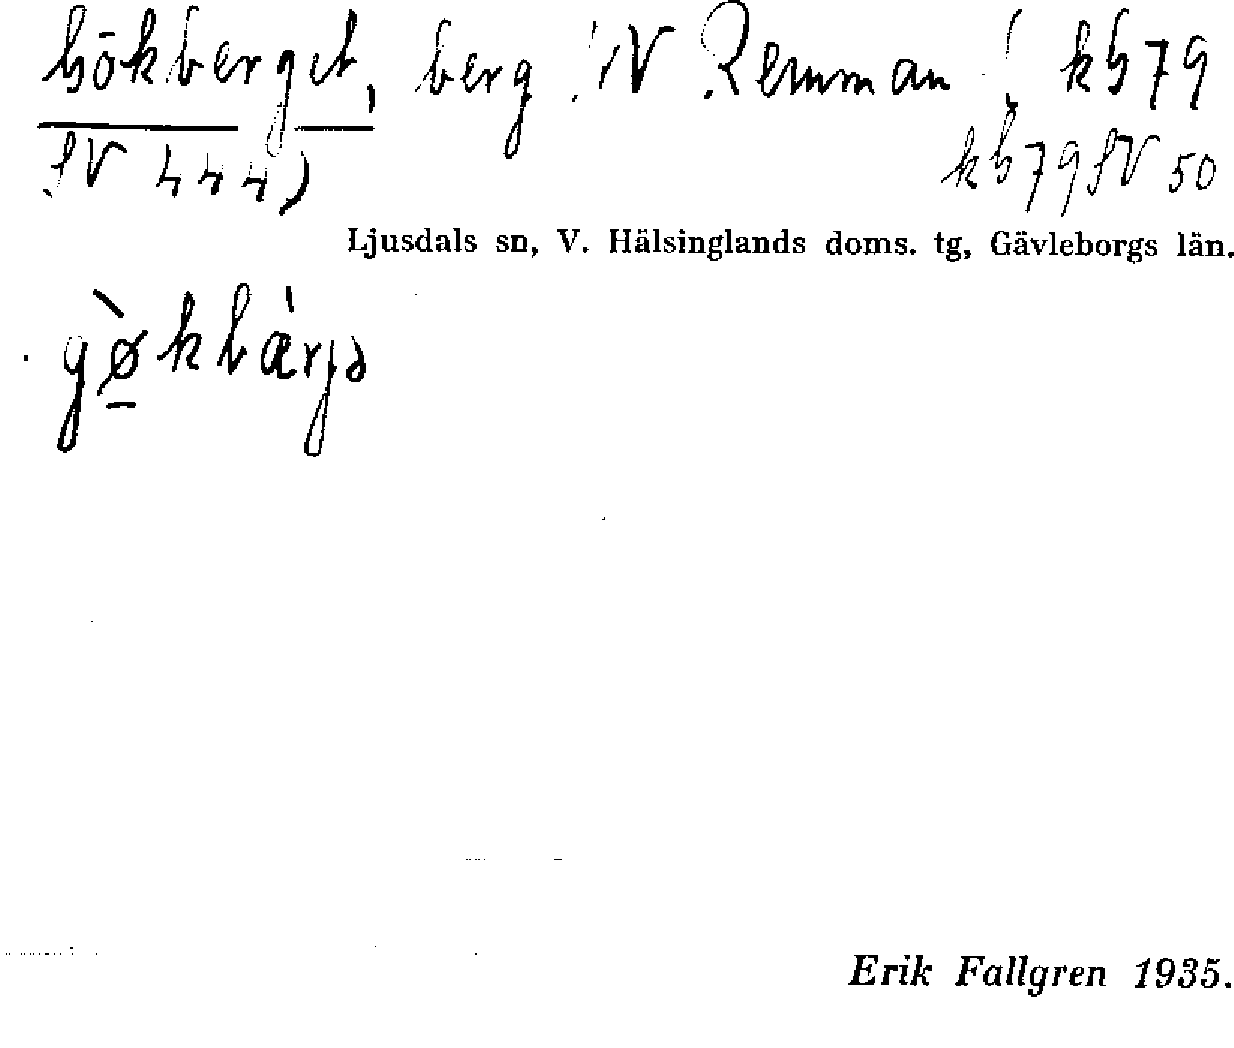 Gökberget, berg NV Remman kb 79
NV 444) kb 79 NV 50
Ljusdals sn, V. Hälsinglands doms. tg, Gävleborgs län.
gø̀kbærjə
Erik Fallgren 1935.